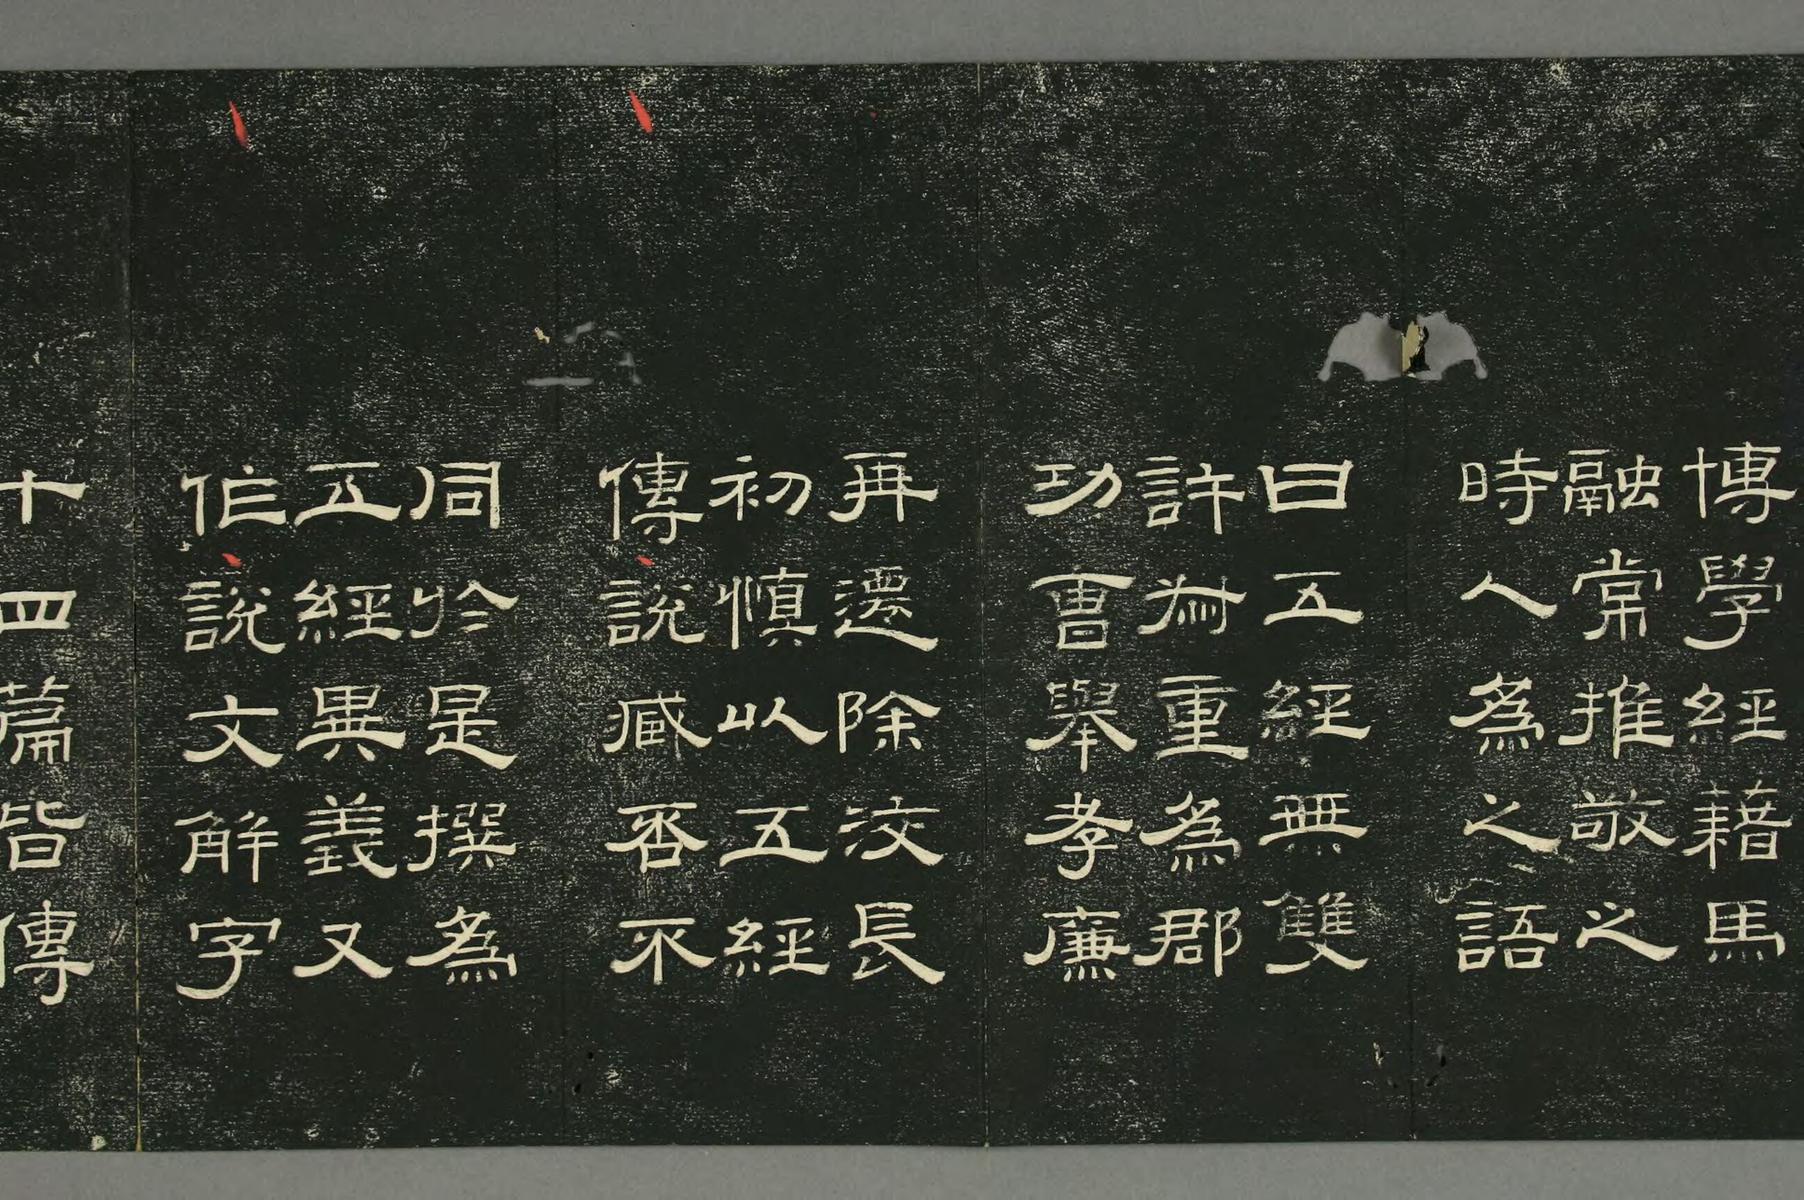 博學經藉馬
融常推敬之
時人為之語
曰五經無雙
許叔重為郡
功曹舉孝廉
再遷除洨長
初慎以五經
傳說臧否不
同於是撰為
五經異義又
作說文解字
十四篇皆傳